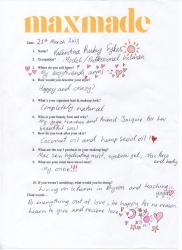 maxmade
Date: 21st March 2013
1. Name? Valentina Ruby Sykes
2. Occupation? Model / Professional
3. Where do you call home?
My boyfriends arms
4. How would you describe your style?
Happy and crazy!
5. What's your signature hair & makeup look?
Completely natural
6. Who is your beauty, love and why?
My yoga teacher and friend Jacquie for her
beautiful soul
7. How do you look after your skin?
Coconut oil and hemp seed oil!
8. What are the top 3 products in your makeup bag?
9. What can you
My onesie!!!
10. If you weren't modelling, what would you be doing?
Living on a farm in Byron and teaching
Final words
Is everything out of love, be happy for no reason
Learn to give and receive love